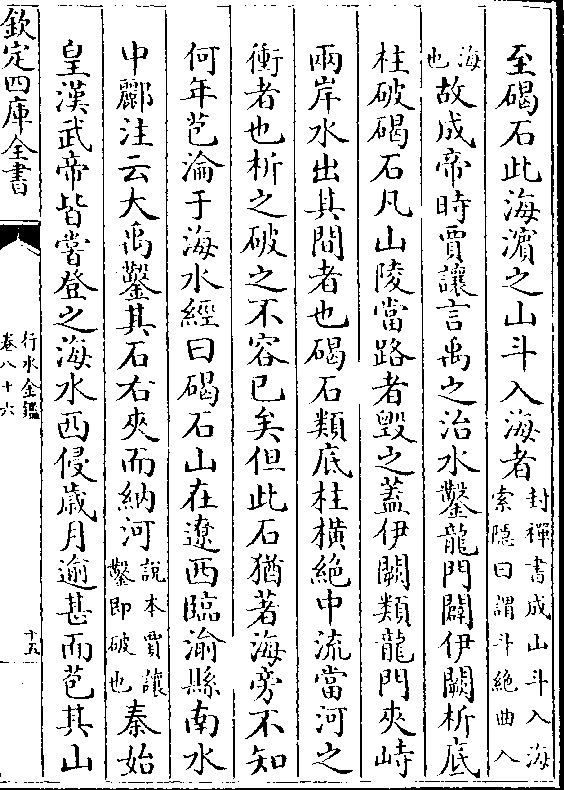 至碣石此海濵之山斗入海者封禪書成山斗入海索隱曰謂斗絶曲入
海也故成帝時賈讓言禹之治水鑿龍門闢伊闕析底
柱破碣石凡山陵當路者毁之蓋伊闕類龍門夾峙
兩岸水出其間者也碣石類底柱橫絶中流當河之
衝者也析之破之不容已矣但此石猶著海旁不知
何年苞淪于海水經曰碣石山在遼西臨渝縣南水
中酈注云大禹鑿其石右夾而納河説本賈讓鑿即破也秦始
皇漢武帝皆嘗登之海水西侵歳月逾甚而苞其山
欽定四庫全書
行水金鑑
卷八十六
十五